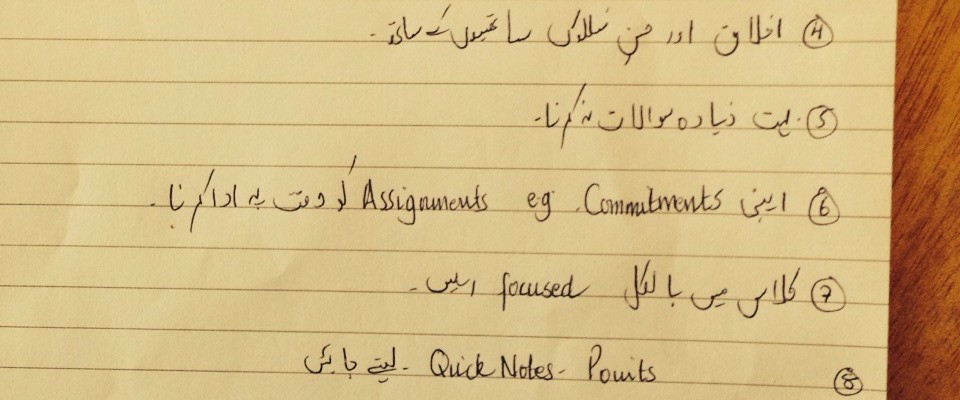 ④ اخلاق اور حسنِ سلوک ساتھیوں کے ساتھ۔
⑤ بہت زیادہ سوالات نہ کرنا۔
⑥ اپنی Commitments eg Assignments کو وقت پہ ادا کرنا۔
⑦ کلاس میں بالکل focused رہیں۔
⑧ Quick Notes - Points لیتے جائیں